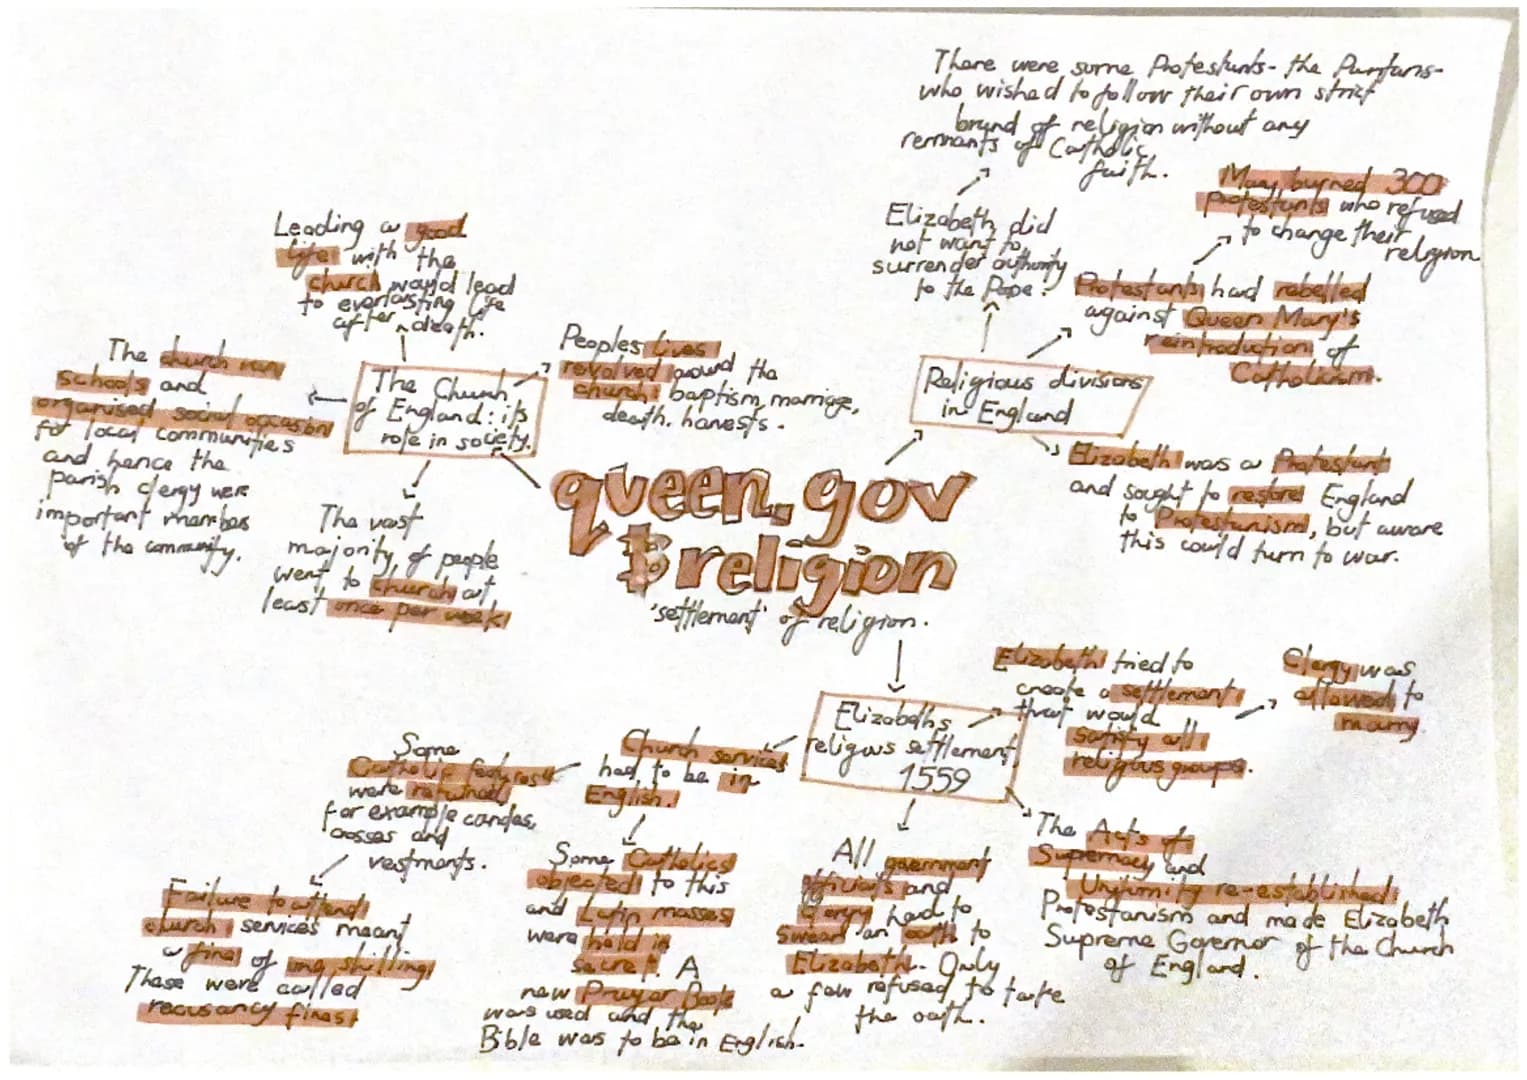 There were some Protestants- the Puritans-
who wished to follow their own strict
brand of religion without any
remnants of Catholic
faith.
Elizabeth did
not want to
surrender authority
to the Pope.
Mary burned 300
protestants who refused
to change their
religion
Protestants had rebelled
against Queen Mary's
reintroduction of
Catholicism.
Religious divisions
in England
Elizabeth was a Protestant
and sought to restore England
to Protestanism, but aware
this could turn to war.
Leading a good
life with the
church would lead
to everlasting life
after death.
The Church
of England: its
role in society.
Peoples lives
revolved around the
church: baptism, marriage,
death. harvests.
The church ran
schools and
organised social occasions
for local communities
and hence the
parish clergy were
important members
of the community.
The vast
majority of people
went to church at
least once per week
queen. gov
& religion
'settlement' of religion.
Elizabeths
religious settlement
1559
Elizabeth tried to
create a settlement
that would
satisfy all
religious groups.
Clergy was
allowed to
marry.
The Acts of
Supremacy and
Uniformity re-established
Protestanism and made Elizabeth
Supreme Governor of the Church
of England.
All government
officials and
Clergy had to
Swear an oath to
Elizabeth. Only
a few refused to take
the oath.
Church services
had to be in
English.
Some Catholics
objected to this
and Latin masses
were held in
secret. A
new Prayer Book
was used and the
Bible was to be in English.
Some
Catholic features
were
for example candes,
crosses and
vestments.
Failure to attend
church services meant
a fine of one shilling
These were called
recusancy fines